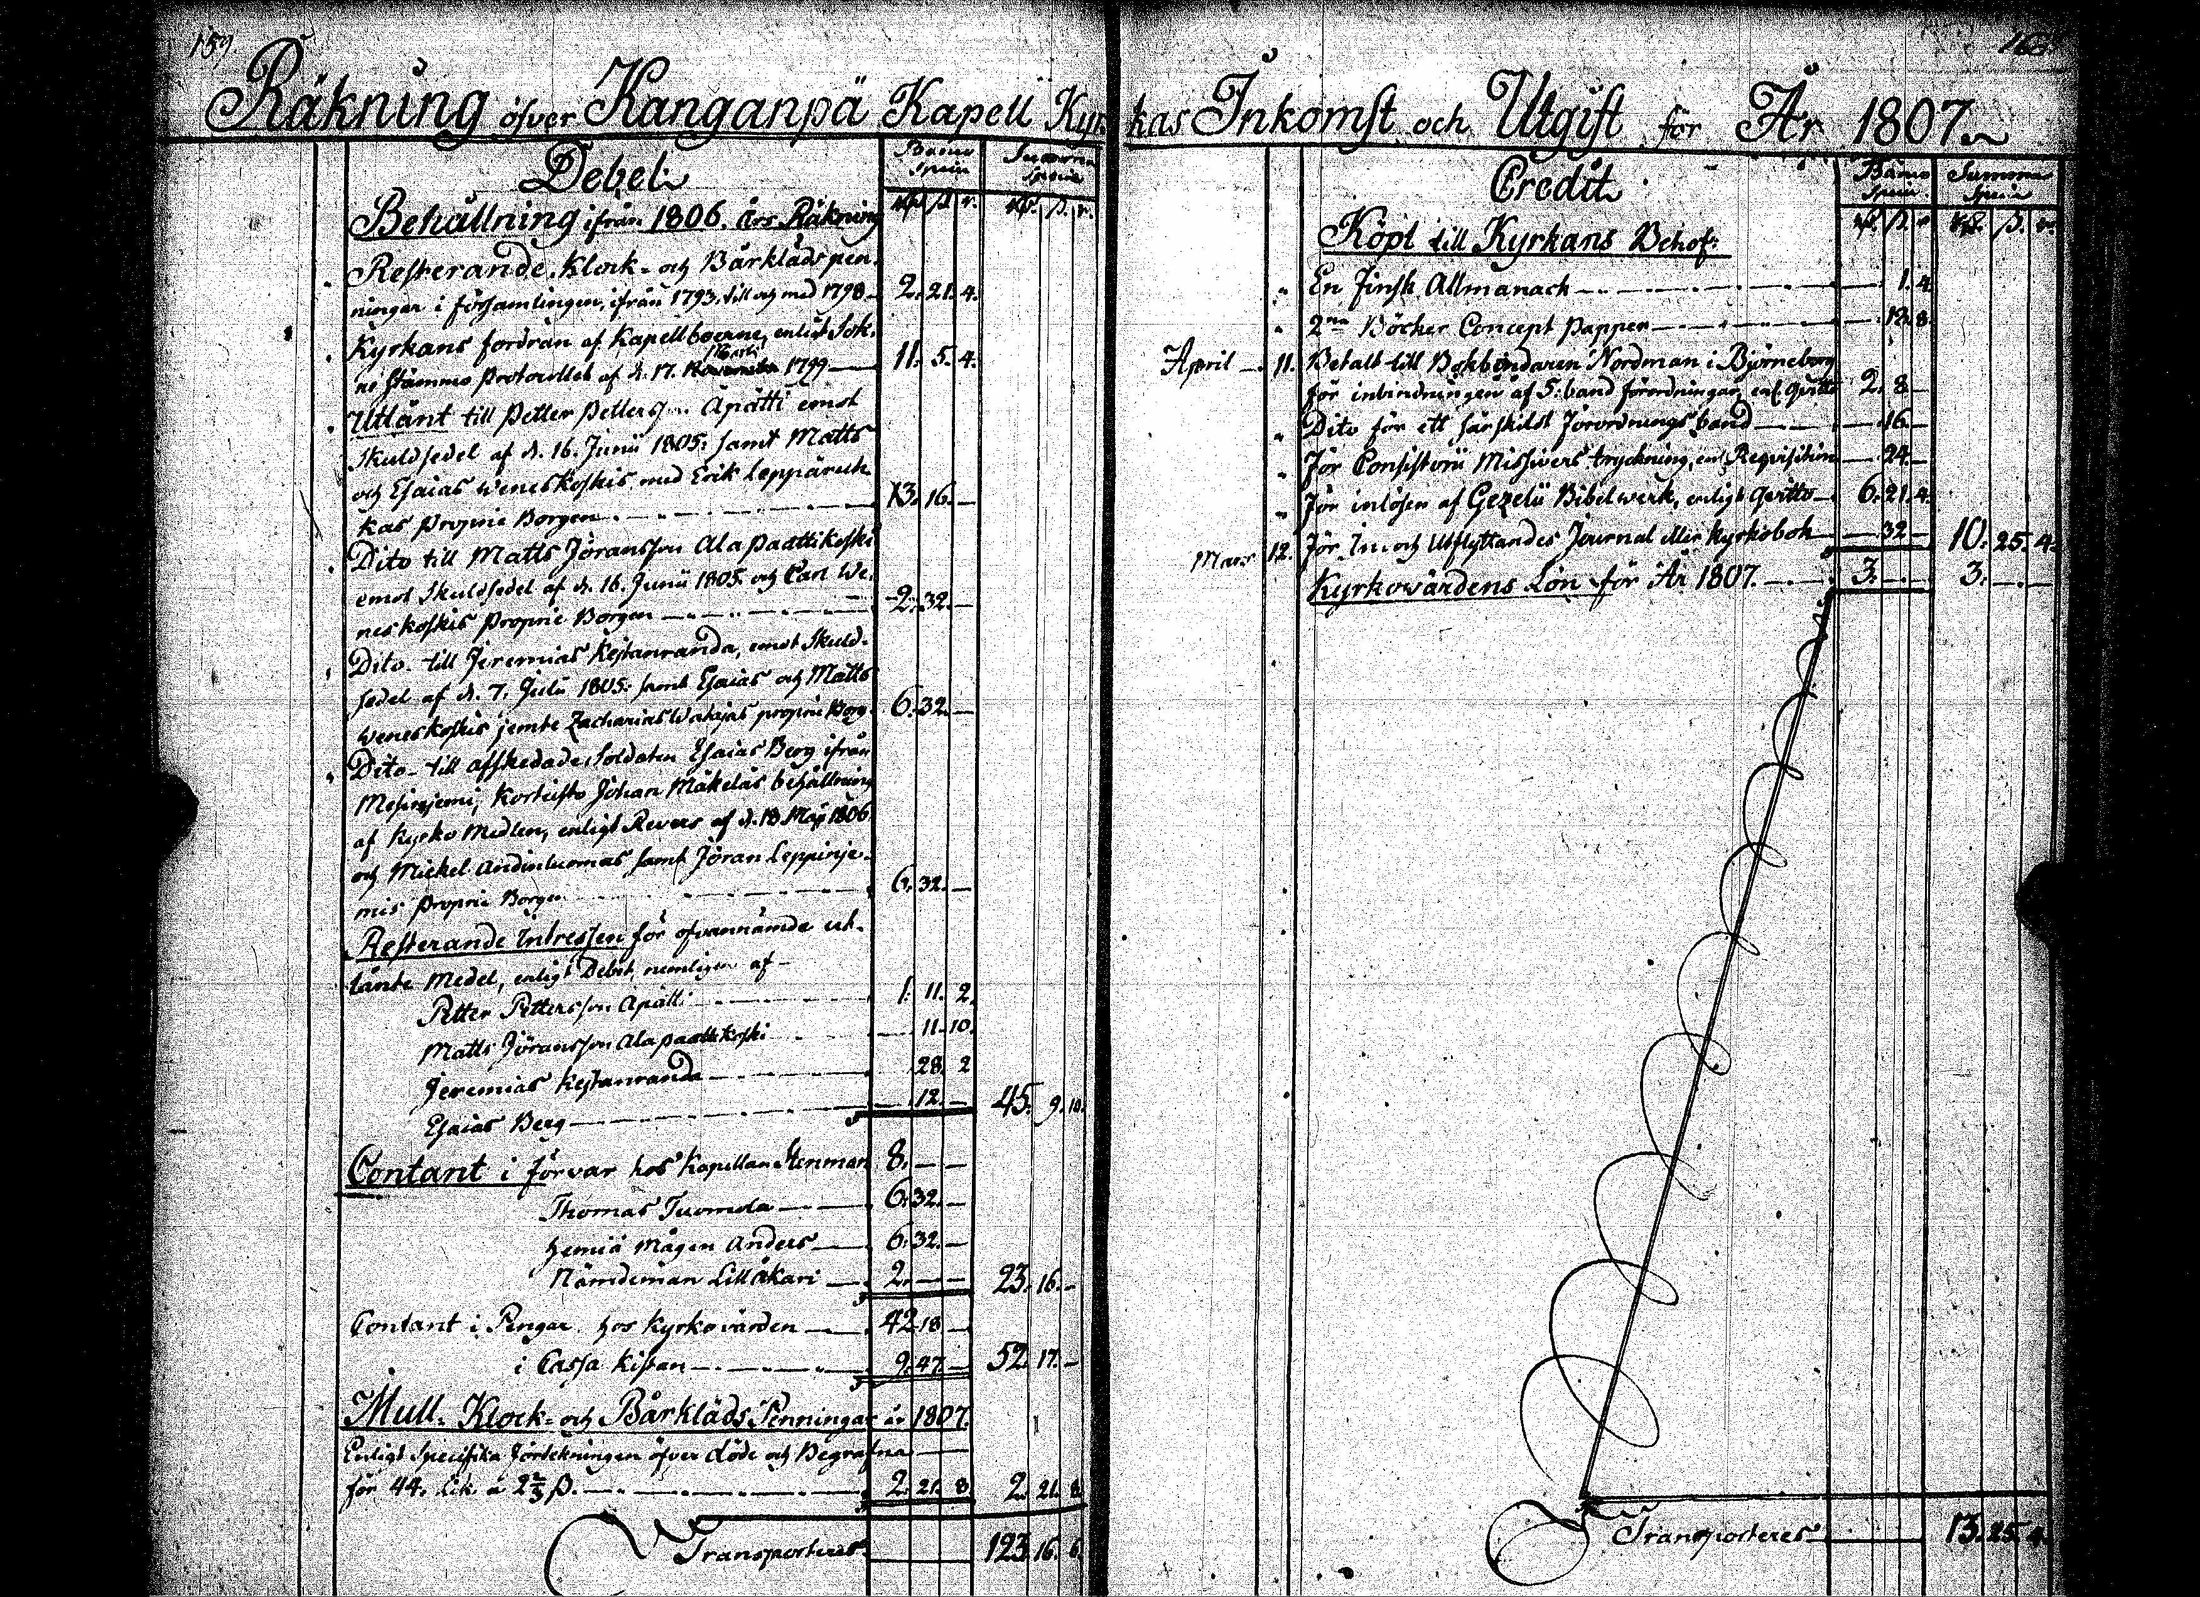 159.
Räkning öfver Kanganpä Kapell Kyr
Debet
Banco Specie
Summa Specie
Behållning ifrån 1806. års Räkning
Resterande Klock- och Bårklädspen-
ningar i församlingen, ifrån 1793. till och med 1798 2. 21. 4.
Kyrkans fordran af Kapellboerne, enligt Sok-
ne Stämmo Protocollet af d. 17. Martii 1799 11. 5. 4.
Utlånt till Petter Petterson Apätti emot
Skuldsedel af d. 16. Junii 1805. samt Matts
och Esaias Weneskoskis med Erik Leppäruh-
kas Proprie Borgen 13. 16. —
Dito till Matts Jöransson Alapaattikoski
emot Skuldsedel af d. 16. Junii 1805. och Carl We-
neskoskis Proprie Borgen 2. 32. —
Dito till Jeremias Keftanranda, emot Skuld-
sedel af d. 7. Julii 1805. samt Esaias och Matts
Weneskoskis jemte Zacharias proprie Borg. 6. 32. —
Dito till afskedade Soldaten Esaias Berg ifrån
Johan Mäkeläs behållning
af Kyrko Medlen, enligt Revers af d. 18 Maji 1806
och Mickel samt Jöran Leppirje-
mis Proprie Borgen 6. 32. —
Resterande Intressen för ofvannämde ut-
länte Medel, enligt Debit, nemligen af
Petter Pettersson Apätti 1. 11. 2.
Matts Jöransson Alapaattikoski — 11. 10.
Jeremias Keftanranda 28. 2
Esaias Berg — 12. — 45. 9. 10.
Contant i förvar hos Kapellan Stenman 8. — —
Thomas Tuomola 6. 32. —
Hemiä Mågen Anders 6. 32. —
Nämdeman Lilläkari 2. — — 23. 16. —
Contant i Pengar hos Kyrkovärden 42. 18. —
i Cassa Kistan 9. 47. — 52. 17. —
Mull- Klock- och Bårkläds Penningar år 1807.
Enligt Specifika Förtekningen öfver döde och Begrafna
för 44. lik à 2 2/3 ß. 2. 21. 8. 2. 21. 8.
Transporteres 123. 16. 6.
160.
kas Inkomst och Utgift för År 1807.
Credit
Banco Specie
Summa Specie
Köpt till Kyrkans Behof:
En Finsk Allmanach — 1. 4.
2ne Böcker Concept Papper — 13. 8.
April 11. Betalt till Bokbindaren Nordman i Björneborg
för inbindningen af 5. band förordningar, enl. Quitto 2. 8. —
Dito för ett särskildt Förordnings band — 16. —
För Consistorii Missivers tryckning, enl. Requisition — 24. —
För inlösen af Gezelii Bibelwerk, enligt Quitto 6. 21. 4.
Mars 12. För In- och Utflyttandes Journal eller Kyrkobok — 32 — 10. 25. 4.
Kyrkowärdens Lön för År 1807. 3. — — 3. — —
Transporteres 13. 25. 4.